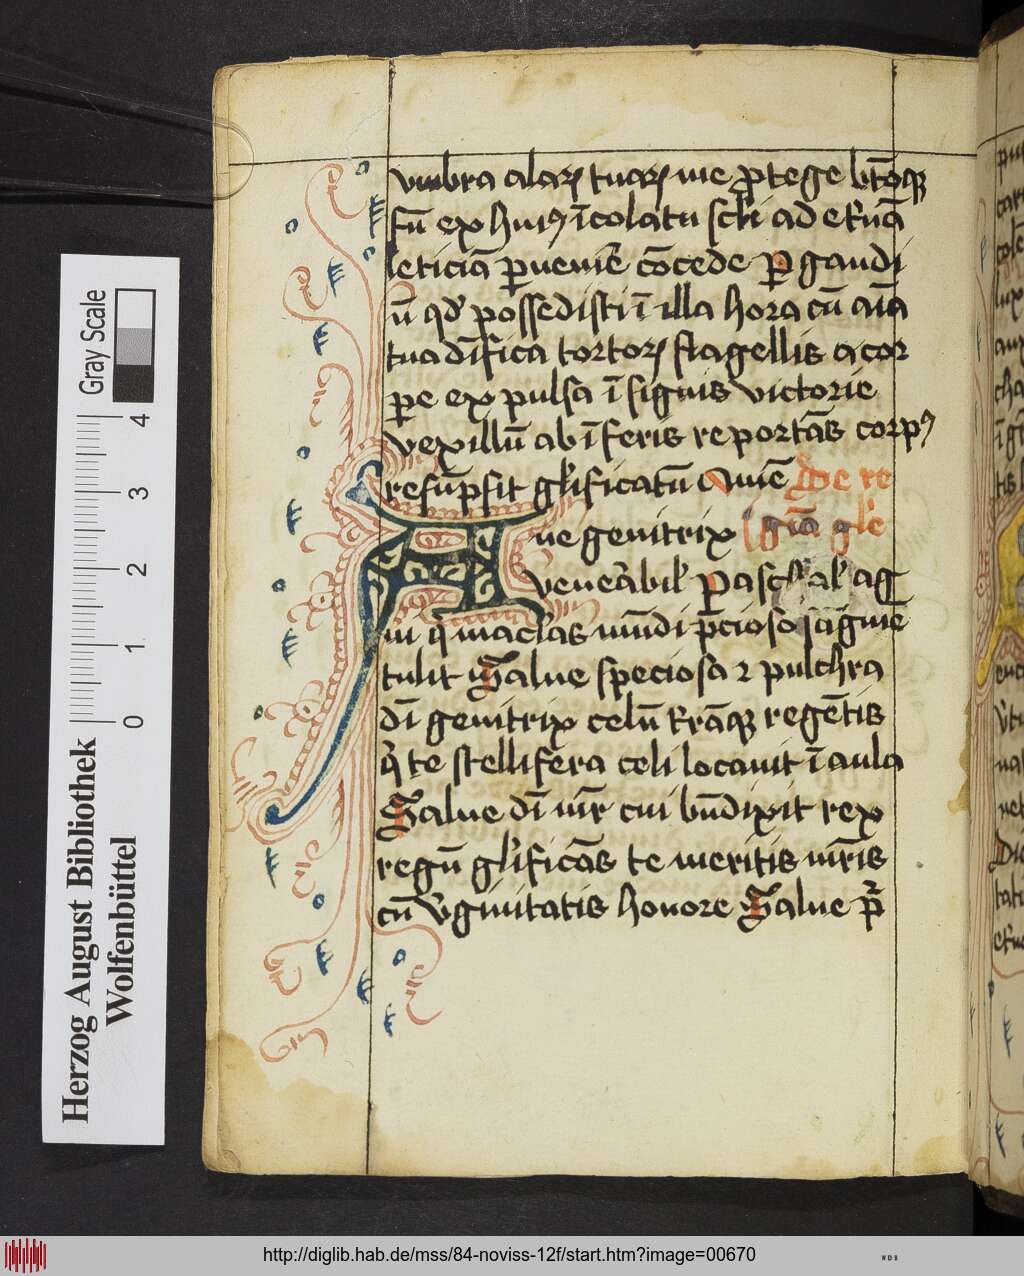 vmbra alarꝝ tuarꝝ me ꝓtege
fū ex huiꝰ īcolatu scli ad etnā
leticiā ꝑuenire cōcede Per gaudi
ū qd possedisti ī illa hora cū aīa
tua dīfica tortorꝝ flagellis a cor
pe expulsa īsignis victorie
vexillū ab īferis reportās corpꝰ
resūpsit glīficatū Amē De re
ue genitrix sūa glē
venerābil Pascal ag
ni q maclas mūdi pcioso sāgnīe
tulit Salue speciosa ⁊ pulchra
dī genitrix celū trāqꝫ regētis
q te stellifera celi locauit ī aula
Salue dī mr cui bndixit rex
regū glīficās te meritis mris
cū vginitatis honore Salue
Gray Scale
4
3
2
1
0
Herzog August Bibliothek
Wolfenbüttel
http://diglib.hab.de/mss/84-noviss-12f/start.htm?image=00670